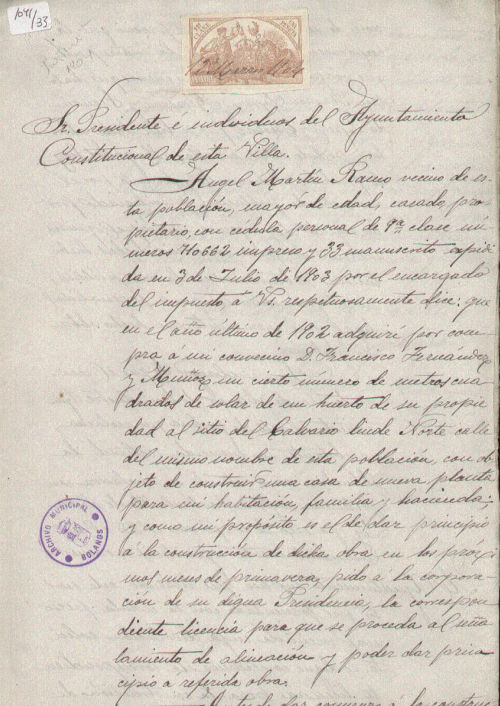 1041/33
12 Marzo 1904
Sr. Presidente é individuos del Ayuntamiento
Constitucional de esta Villa.
Angel Martín Ramo vecino de es-
ta población, mayor de edad, casado, pro-
pietario, con cédula personal de 9ª clase nú-
meros 710662 impreso y 33 manuscrito expedi-
da en 3 de Julio de 1903 por el encargado
del impuesto, á Vs. respetuosamente dice: que
en el año último de 1902 adquiri por com-
pra a un convecino D. Francisco Fernández
y Muñoz un cierto número de metros cua-
drados de solar de un huerto de su propie-
dad al sitio del Calvario linde Norte calle
del mismo nombre de esta población, con ob-
jeto de construir una casa de nueva planta
para mi habitación, familia y hacienda;
y como mi propósito es el de dar principio
á la construcción de dicha obra en los próxi-
mos meses de primavera, pido a la corpora-
ción de su digna Presidencia, la correspon-
diente licencia para que se proceda al seña-
lamiento de alineación y poder dar prin-
cipio á referida obra.
Antes de dar comienzo á la construc
ARCHIVO MUNICIPAL
BOLAÑOS